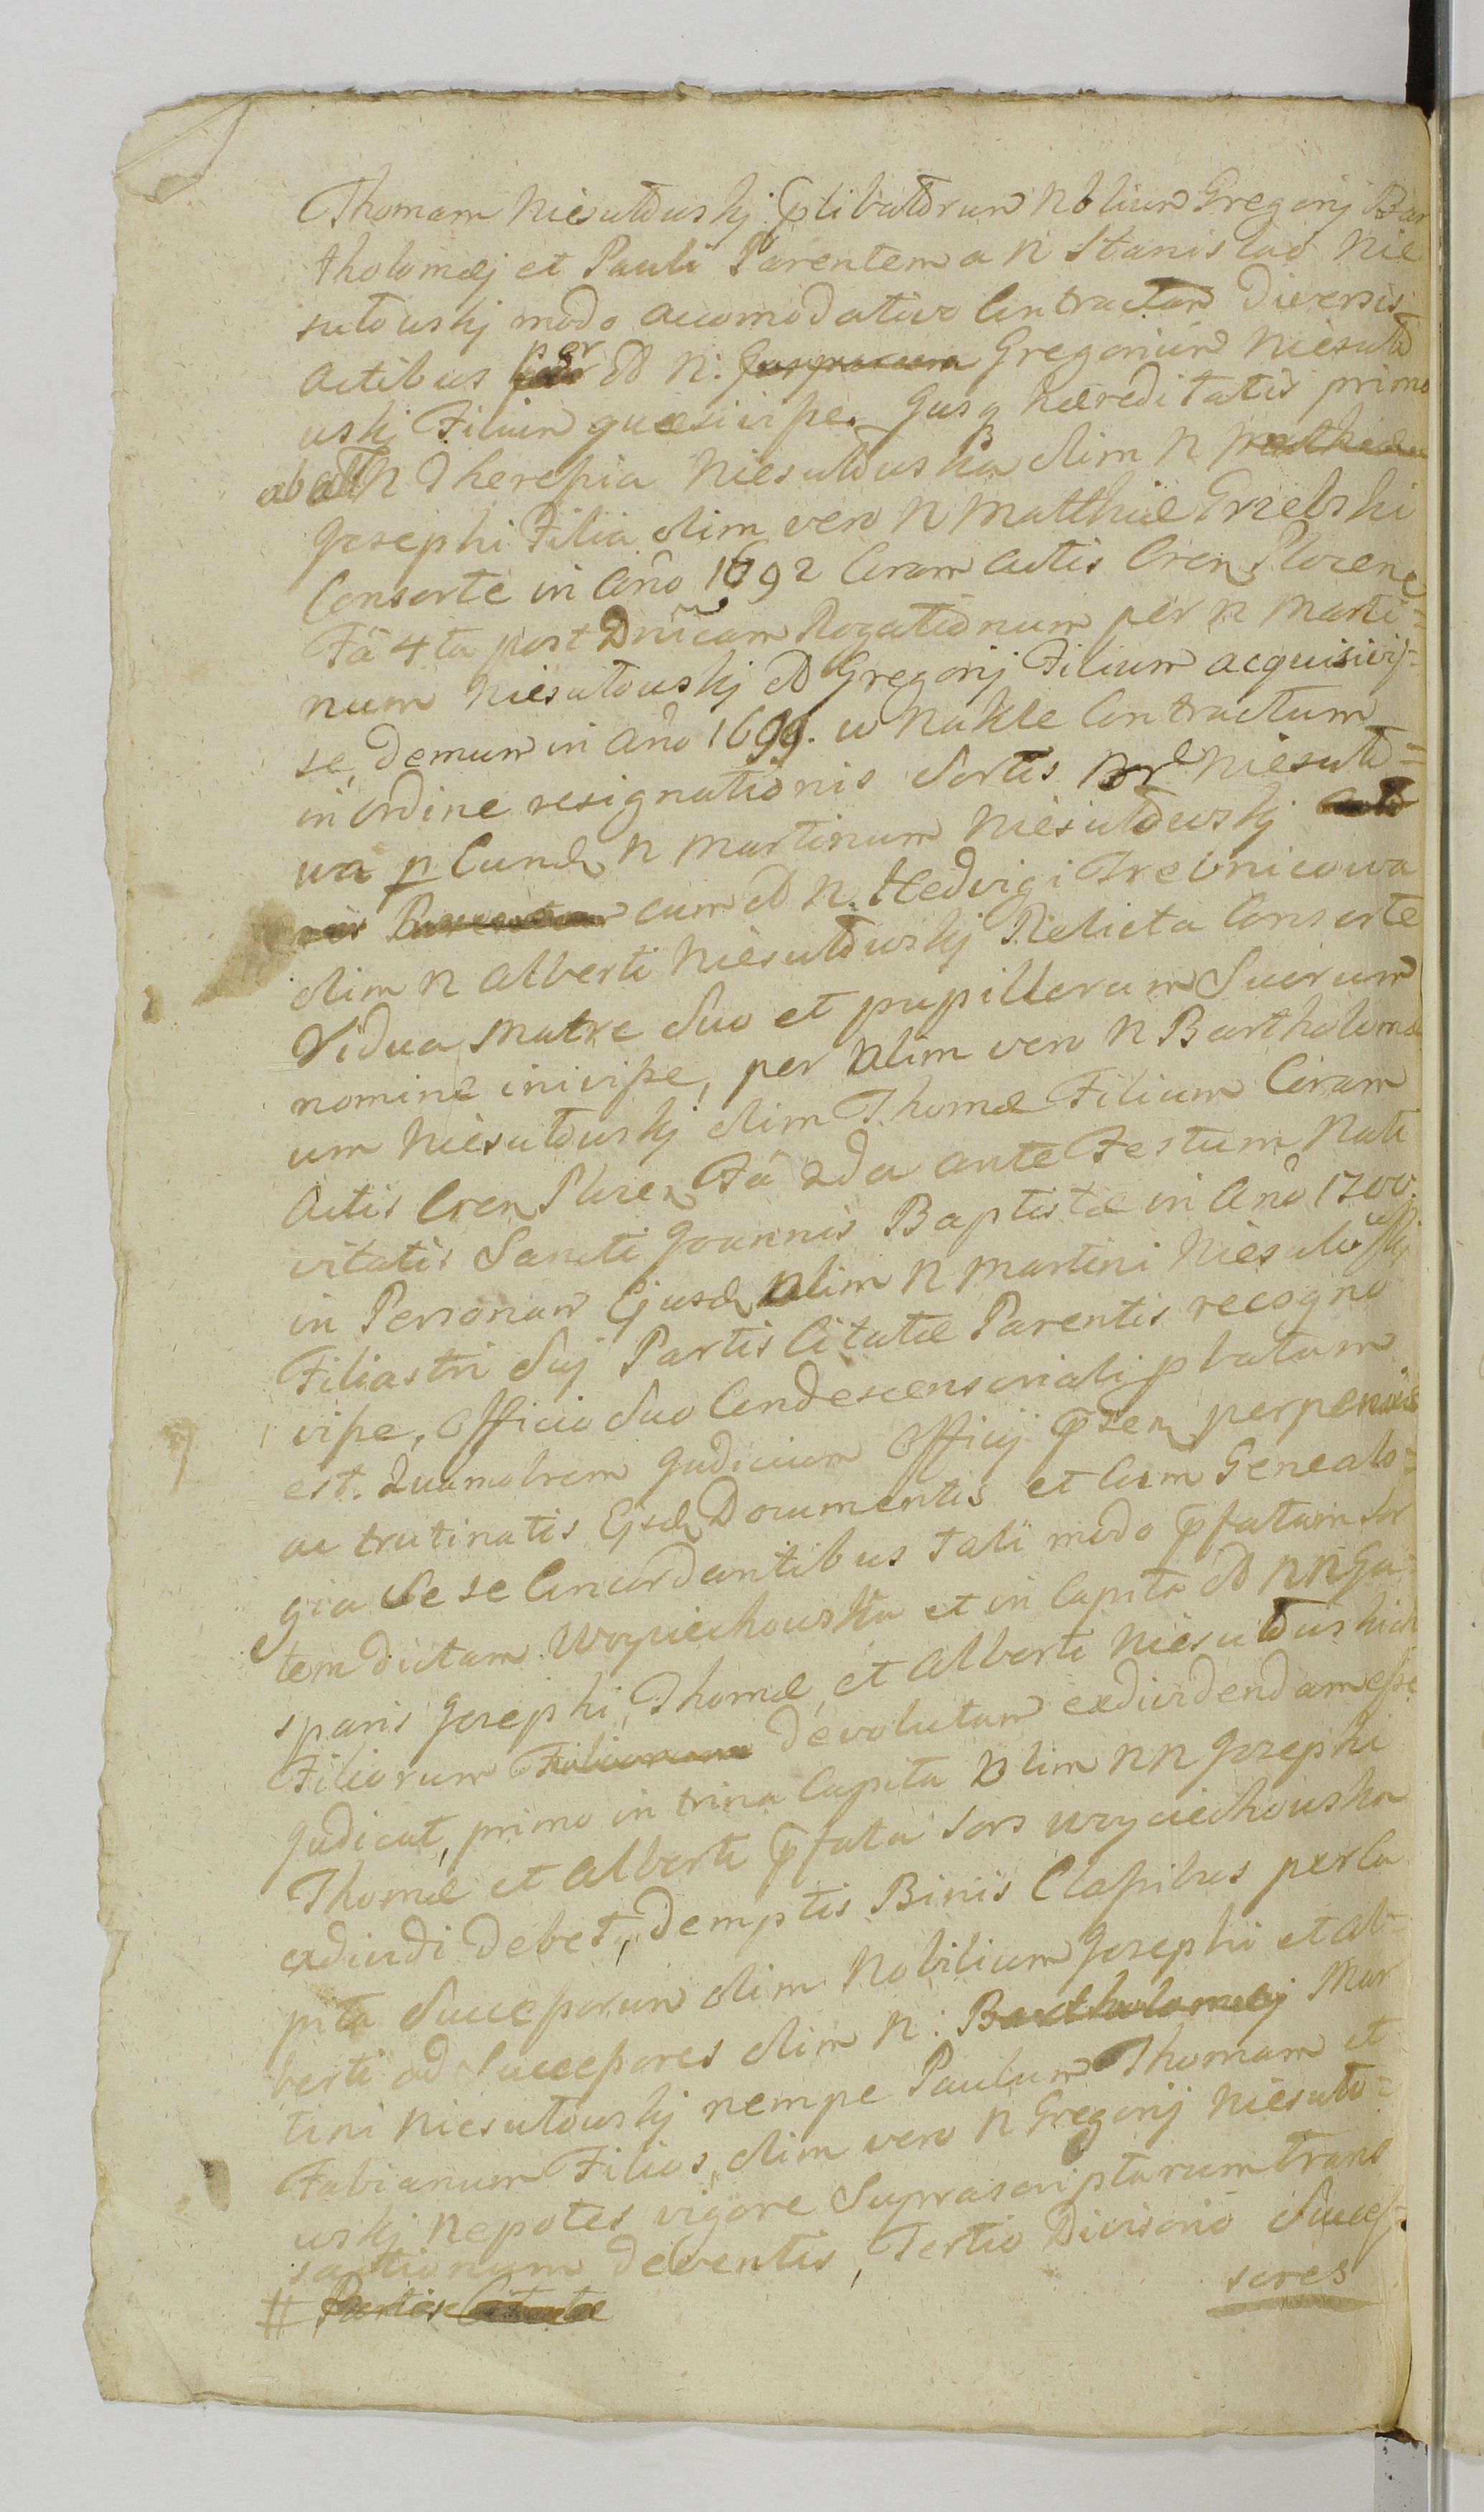 Thomam Niesułowskj p̄libatorum Nblium Gregorij Bar
tholomæj et Pauli Parentem a N Stanislao Nie
sułowskj modo accomodativo Contractum Diversis
Actibus per Gregorium Niesuło
wskj Filium quæsivisse. Jusq hæreditatis primo
ab N Theresia Niesułowska olim N
Josephi Filia olim vero N Matthiæ Grzebski
Consorte in Año 1692 Coram Actis Cren Plocen
Fã 4ta post Dnĩcam Rogationum per N Marti-
num Niesułowskj Gregorij Filium acquisivis-
se, demum in Año 1699. w Nakle Contractum
in ordine resignationis Sortis Niesuło=
wa p N Martinum Niesułowskj
cum N. Hedvigi Trebnicowa
olim N Alberti Niesułowskj Relicta Consorte
Vidua Matre Suo et pupillorum Suorum
nomine inivisse, per olim vero N Bartholomæ
um Niesułowskj olim Thomæ Filium Coram
Actis Cren Plocen Fã 2da ante Festum Nati
vitatis Sancti Joannis Baptistæ in Año 1700.
in Personam Ejusd olim N Martini Niesułowskj
Filiastri Suj Partis Citatæ Parentis recogno
visse, Officio Suo Condescensoriali pbatum
est. Quamobrem Judicium Officij p̄sen perpensis
ac trutinatis Ejsd Documentis et Cum Genealo=
gia Se se Concordantibus tali modo p̄fatam Sor
tem dictam Woyciechowska et in Capita NN Ga
sparis Josephi, Thomæ, et Alberti Niesułowskich
Filiorum devolutam exdividendam esse
Judicat, primo in trina Capita olim NN Josephi
Thomæ et Alberti p̄fata Sors Woyciechowska
exdividi debet, demptis Binis Classibus per Ca
pita Successorum olim Nobilium Josephi et Al-
berti ad Successores olim N: Bartholomæj Mar
tini Niesułowskj nempe Paulum Thomam et
Fabianum Filios, olim vero N Gregorij Niesuło=
wskj Nepotes vigore Suprascriptarum trans
sactionum deventis, Tertio Divisorio Succes=
sores
# Partis Citatæ